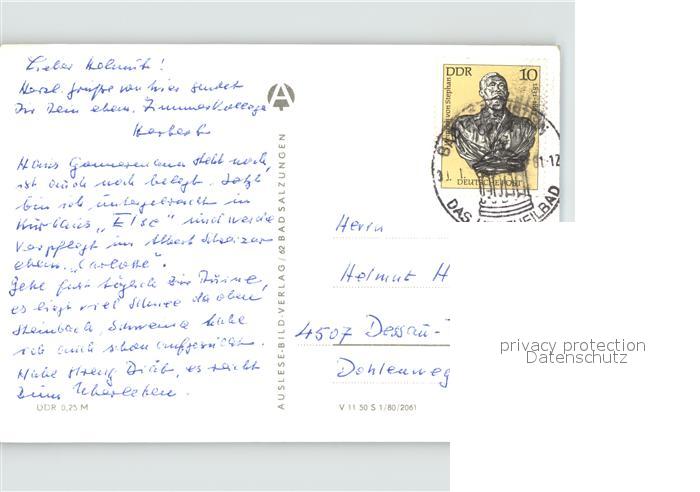 Lieber Helmut!
Herzl. Grüße von hier sendet
Dir Dein ehem. Zimmerkollege
Herbert
Haus steht noch,
ist auch noch belegt. Jetzt
bin ich untergebracht im
Kurhaus „Else" und werde
verpflegt im Albert Schweizer
ehem. „Carlotte".
Gehe fast täglich zur Ruine,
es liegt viel Schnee da oben
Steinbach, Schweina habe
ich auch schon aufgesucht.
Habe streng Diät, es reicht
zum Überleben.
DDR 0,25 M
AUSLESE-BILD-VERLAG / 62 BAD SALZUNGEN
V 11 50 S 1/80/2061
DDR 10
von Stephan
DEUTSCHE POST
BAD
01-12
DAS HEILBAD
Herrn
Helmut H
4507 Dessau-
Dohlenweg
privacy protection
Datenschutz